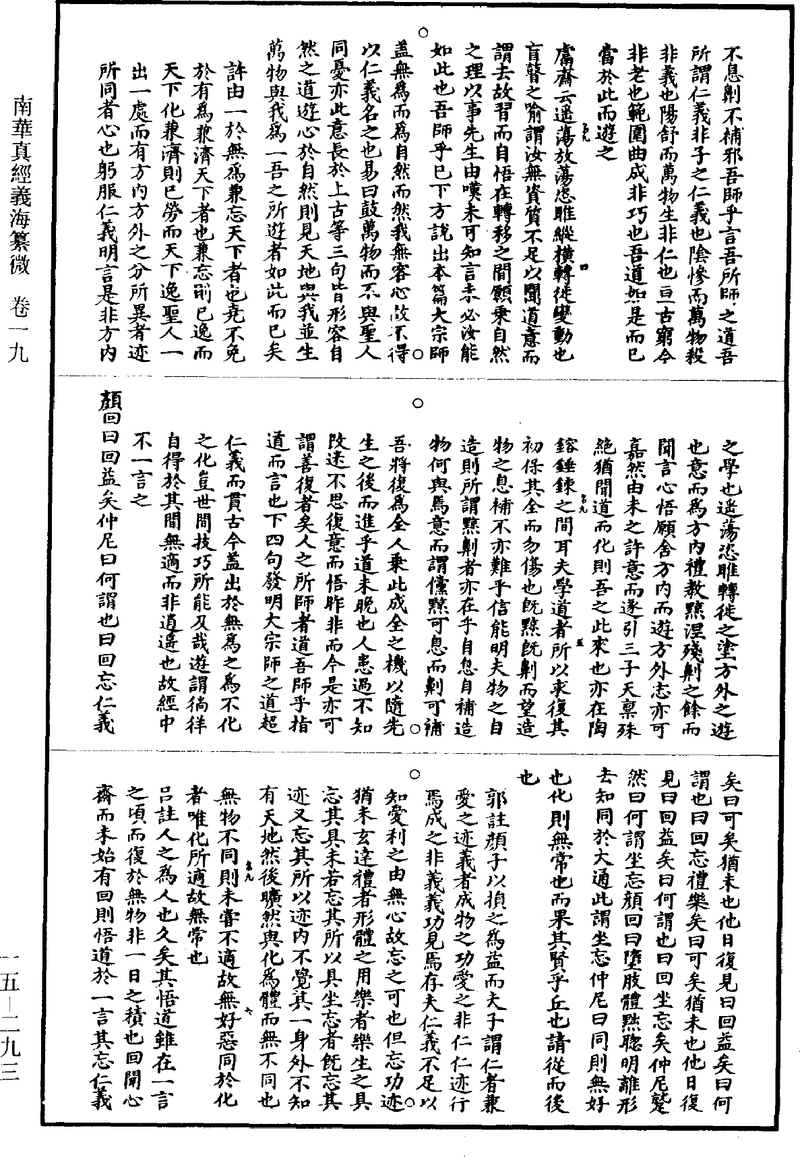 不息劓不補邪吾師乎言吾所師之道吾
所謂仁義非子之仁義也陰慘而萬物殺
非義也陽舒而萬物生非仁也亘古窮今
非老也範圍曲成非巧也吾道如是而已
當於此而遊之
鬳齋云遥蕩放蕩恣睢縱橫轉徙變動也
盲瞽之喻謂汝無資質不足以聞道意而
謂去故習而自悟在轉移之間願乘自然
之理以事先生由嘆未可知言未必汝能
如此也吾師乎已下方說出本篇大宗師
盖無為而為自然而然我無容心故不得
以仁義名之也易曰鼓萬物而不與聖人
同憂亦此意長於上古等三句皆形容自
然之道遊心於自然則見天地與我並生
萬物與我為一吾之所遊者如此而已矣
許由一於無為兼忘天下者也堯不免
於有為兼濟天下者也兼忘則已逸而
天下化兼濟則已勞而天下逸聖人一
出一處而有方内方外之分所異者迹
所同者心也躬服仁義明言是非方内
之學也遥蕩恣睢轉徙之塗方外之遊
也意而為方内禮教黥涅殘劓之餘而
聞言心悟願舍方内而遊方外志亦可
嘉然由未之許意而遂引三子天稟殊
絶猶聞道而化則吾之此來也亦在陶
鎔錘鍊之間耳夫學道者所以求復其
初保其全而勿傷也既黥既劓而望造
物之息補不亦難乎信能明夫物之自
造則所謂黥劓者亦在乎自息自補造
物何與焉意而謂儻黥可息而劓可補
吾將復為全人乗此成全之機以隨先
生之後而進乎道未晚也人患過不知
改迷不思復意而悟昨非而今是亦可
謂善復者矣人之所師者道吾師乎指
道而言也下四句發明大宗師之道超
仁義而貫古今盖出於無為之為不化
之化豈世間技巧所能及哉遊謂徜徉
自得於其間無適而非逍遥也故經中
不一言之
顔回曰回益矣仲尼曰何謂也曰回忘仁義
矣曰可矣猶未也他日復見曰回益矣曰何
謂也曰回忘禮樂矣曰可矣猶未也他日復
見曰回益矣曰何謂也曰回坐忘矣仲尼蹵
然曰何謂坐忘顔回曰墮肢體黜聦明離形
去知同於大通此謂坐忘仲尼曰同則無好
也化則無常也而果其賢乎丘也請從而後
也
郭註顔子以損之為益而夫子謂仁者兼
愛之迹義者成物之功愛之非仁仁迹行
焉成之非義義功見焉存夫仁義不足以
知愛利之由無心故忘之可也但忘功迹
猶未玄達禮者形體之用樂者樂生之具
忘其具未若忘其所以具坐忘者既忘其
迹又忘其所以迹内不覺其一身外不知
有天地然後曠然與化為體而無不同也
無物不同則未嘗不適故無好惡同於化
者唯化所適故無常也
吕註人之為人也久矣其悟道雖在一言
之頃而復於無物非一日之積也回開心
齋而未始有回則悟道於一言其忘仁義
南華真經義海纂微　卷一九
一五—二九三